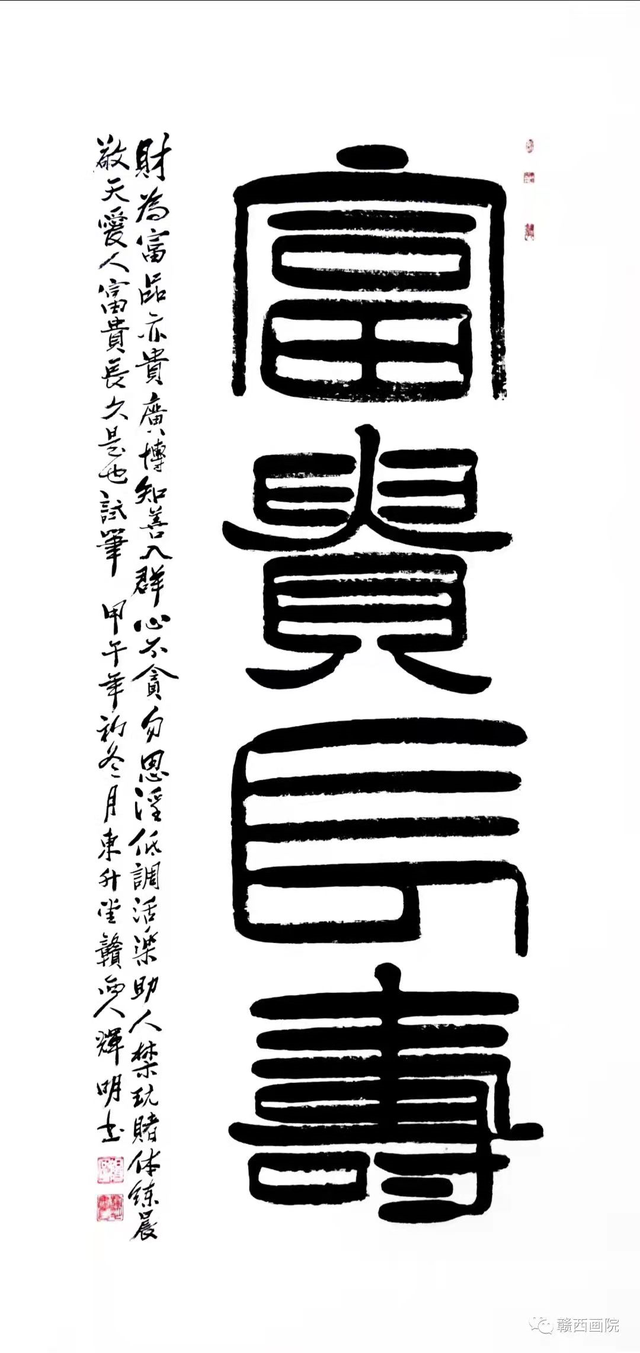 富貴長壽
財為富品亦貴廣博知善入群心不貪勿恩淫低調活樂助人禁玩賭体鍊晨
敬天愛人富貴長久是也試筆 甲午年初冬月東升堂贛西人輝明书
赣西画院